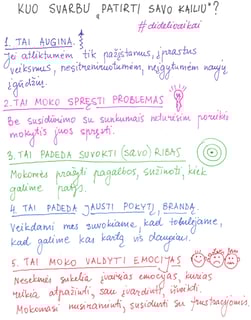 KUO SVARBU „PATIRTI SAVO KAILIU"?
#didelivaikai
1. TAI AUGINA.
Jei atliktumėm tik pažįstamus, įprastus
veiksmus, nesitreniruotumėm, neįgytumėm naujų
įgūdžių.
2. TAI MOKO SPRĘSTI PROBLEMAS
Be susidūrimo su sunkumais neturėsim poreikio
mokytis juos spręsti.
3. TAI PADEDA SUVOKTI (SAVO) RIBAS
Mokomės prašyti pagalbos, sužinoti, kiek
galime patys.
4. TAI PADEDA JAUSTI POKYTĮ, BRANDĄ.
Veikdami mes suvokiame, kad tobulėjame,
kad galime kas kartą vis daugiau.
5. TAI MOKO VALDYTI EMOCIJAS
Nesėkmės sukelia įvairias emocijas, kurias
reikia atpažinti, sau įvardinti, išveikti.
Mokomasi nusiraminti, susidurti su frustracijomis.